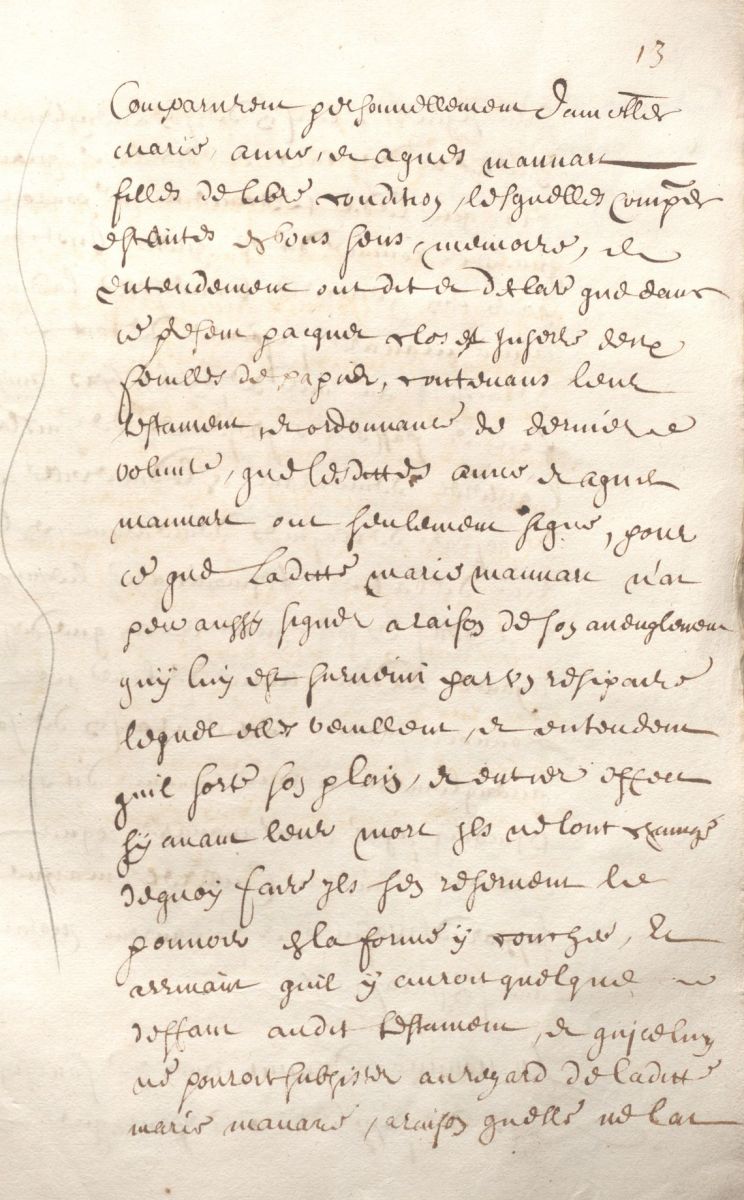 13
Comparurent personnellement Damelles
Marie, anne, et agnes mannart
filles de libre condition, lesquelles comp.
estantes en bons sens, memoire, et
entendement ont dit et declaré que dans
ce pesent pacquet clos est inserré deux
feuilles de papier, contenans leur
testament, et ordonnance de derniere
volunté, que lesdittes anne et agnes
mannart ont seulement signé, pour
ce que Laditte marie mannart n'at
peu aussy signer a raison de son aveuglement
quÿ luy est survenu par un
lequel elles veuillent, et entendent
quil sorte son plain, et entier effect
sÿ avant leur mort ils ne lont changé
dequoÿ faire ÿls sen reservent le
pouvoir en la forme ÿ couchée, Et
arrivant quil ÿ auroit quelque
deffaut audit testament, et quiceluy
ne pouroit subsister au regard de laditte
marie manart, a raison quelle ne lat